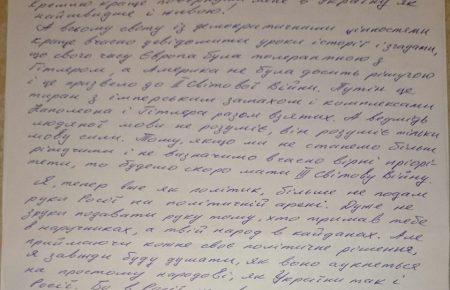 Кремлю краще повернути мене в Україну як
найшвидше і живою!
А всьому світу із демократичними цінностями
краще вчасно усвідомити уроки історії і згадати,
що свого часу Європа була толерантною з
Гітлером, а Америка не була досить рішучою
і це призвело до II Світової Війни. Путін це
тиран з імперським запахом і комплексами
Наполеона і Гітлера разом взятих. А ведмідь
людяної мови не розуміє, він розуміє тільки
мову сили. Тому, якщо ми не станемо більш
рішучими і не визначимо вчасно вірні пріорі-
тети, то будемо скоро мати III Світову Війну.
Я, тепер вже як політик, більше не подам
руки Росії на політичній арені. Дуже не
зруки подавати руку тому, хто тримав тебе
в наручниках, а твій народ в кайданах. Але
приймаючи кожне своє політичне рішення,
я завжди буду думати, як воно аукнеться
на простому народові, як України так і
Росії. Бо в Росії